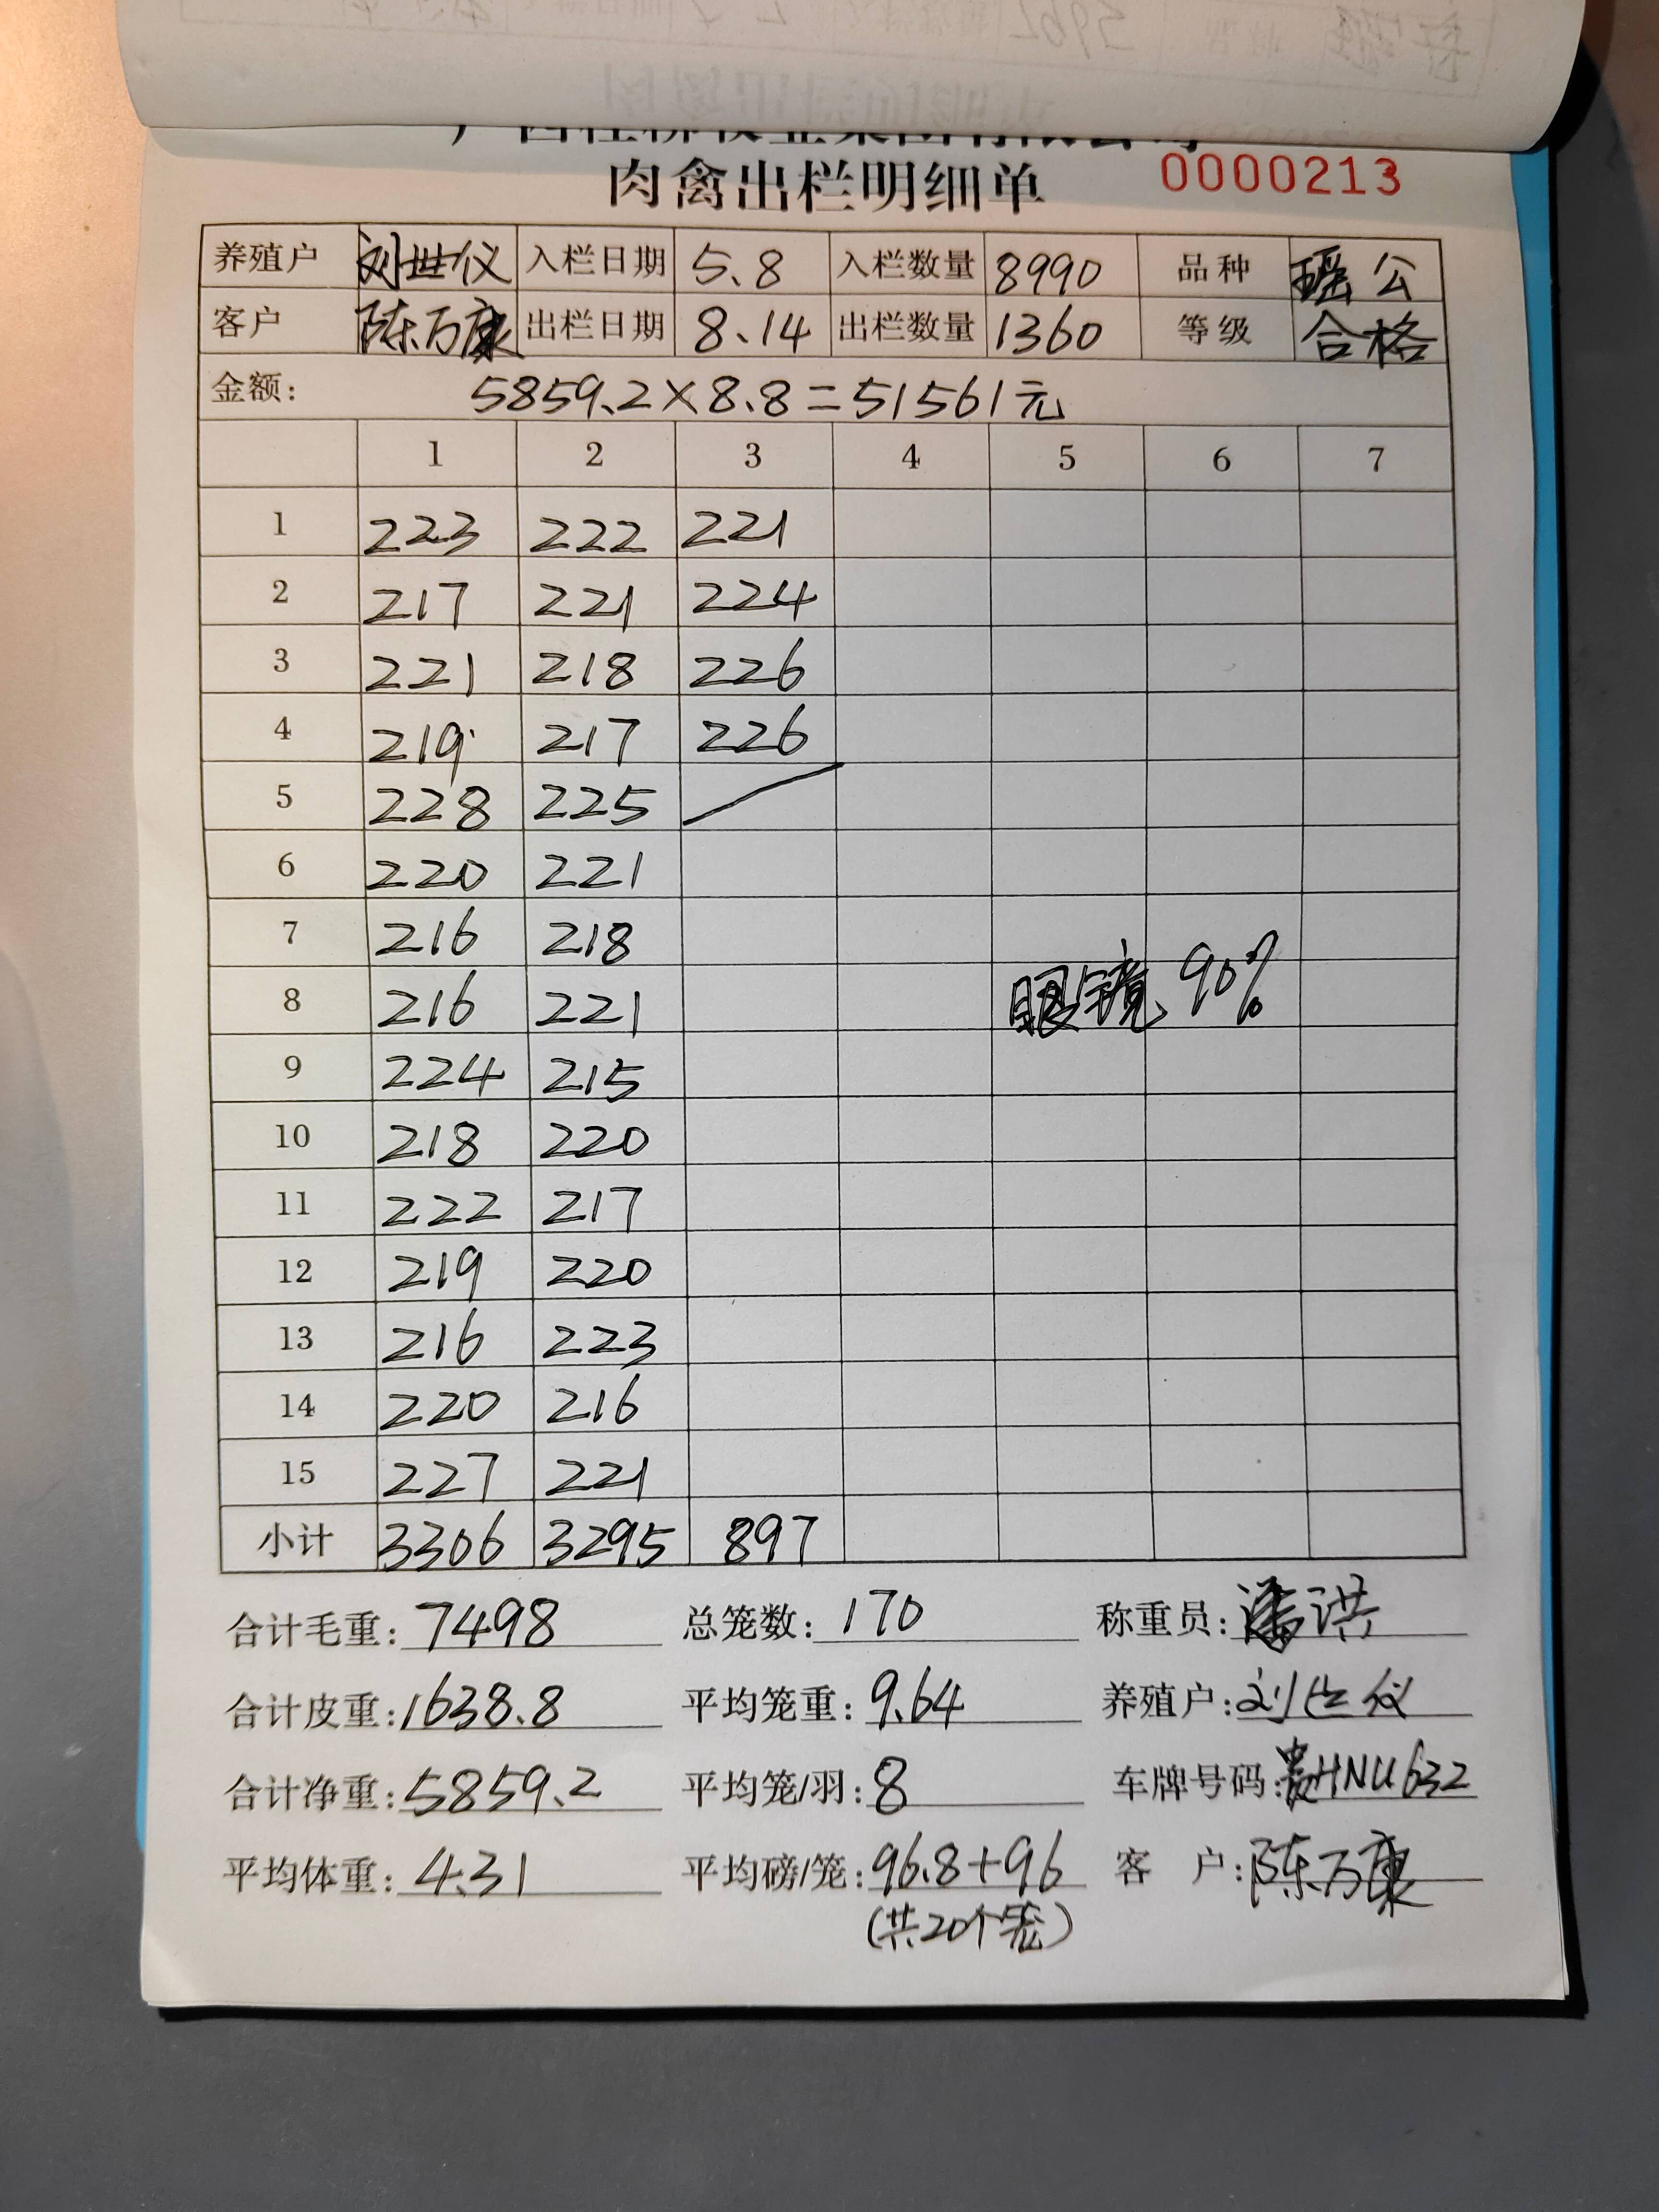 肉禽出栏明细单 0000213
养殖户 刘世仪 入栏日期 5.8 入栏数量 8990 品种 瑶公
客户 陈万康 出栏日期 8.14 出栏数量 1360 等级 合格
金额: 5859.2×8.8=51561元
1 2 3 4 5 6 7
1 223 222 221
2 217 221 224
3 221 218 226
4 219 217 226
5 228 225
6 220 221
7 216 218
8 216 221 眼镜 90%
9 224 215
10 218 220
11 222 217
12 219 220
13 216 223
14 220 216
15 227 221
小计 3306 3295 897
合计毛重: 7498 总笼数: 170 称重员: 潘洪
合计皮重: 1638.8 平均笼重: 9.64 养殖户: 刘世仪
合计净重: 5859.2 平均笼/羽: 8 车牌号码: 贵HNU632
平均体重: 4.31 平均磅/笼: 96.8+96 客 户: 陈万康
(共20个笼)